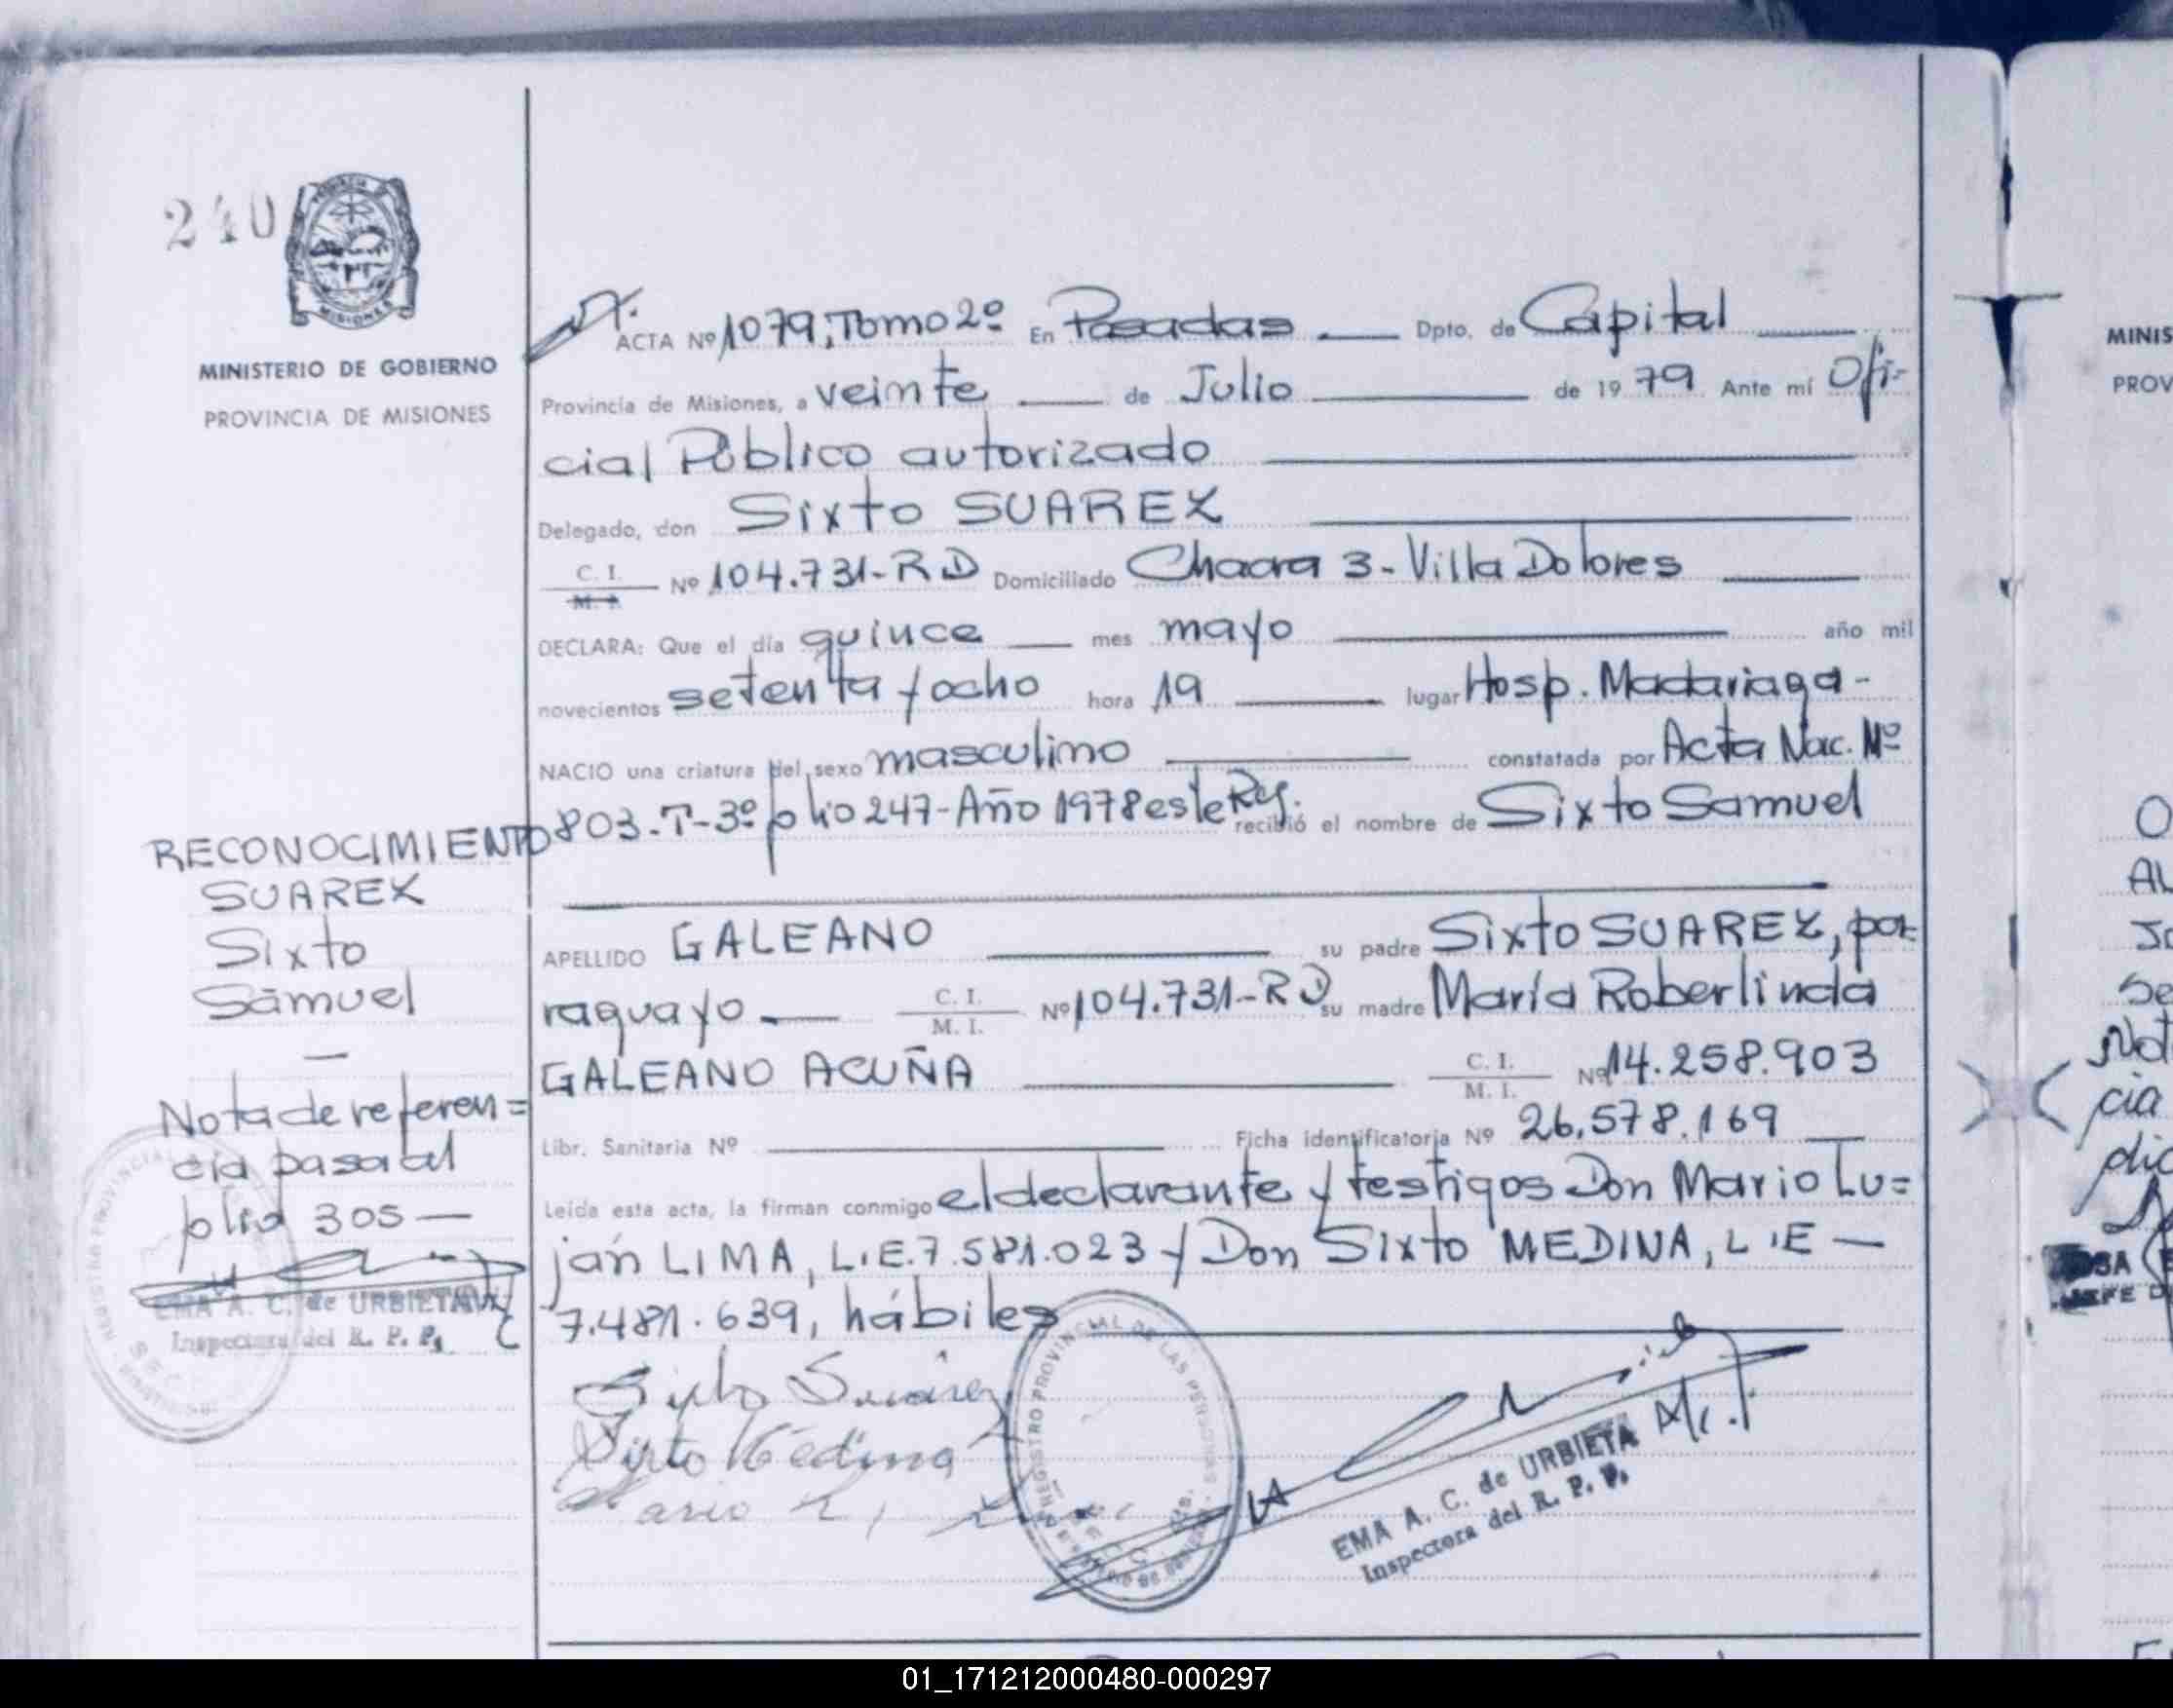 240
MISIONES
MINISTERIO DE GOBIERNO
PROVINCIA DE MISIONES
ACTA Nº 1079, Tomo 2º En Posadas Dpto. de Capital
Provincia de Misiones, a veinte de Julio de 19 79 Ante mí Ofi-
cial Público autorizado
Delegado, don Sixto SUAREZ
C. I.
M. I.
Nº 104.731-RD Domiciliado Chacra 3 - Villa Dolores
DECLARA: Que el día quince mes mayo año mil
novecientos setenta y ocho hora 19 lugar Hosp. Madariaga -
NACIO una criatura del sexo masculino constatada por Acta Nac. Nº
803-T-3º folio 247-Año 1978 este Reg. recibió el nombre de Sixto Samuel
APELLIDO GALEANO su padre Sixto SUAREZ, pa-
raguayo C. I. M. I. Nº 104.731-RD su madre María Roberlinda
GALEANO ACUÑA C. I. M. I. Nº 14.258.903
Libr. Sanitaria Nº Ficha identificatoria Nº 26.578.169
Leída esta acta, la firman conmigo el declarante y testigos Don Mario Lu=
ján LIMA, L.E. 7.581.023 y Don Sixto MEDINA, L.E —
7.481.639, hábiles
RECONOCIMIENTO
SUAREZ
Sixto
Samuel
—
Nota de referen=
cia pasa al
folio 305 —
EMA A. C. de URBIETA
Inspectora del R. P. P.
Sixto Suárez
Sixto Medina
Mario L.
REGISTRO PROVINCIAL DE LAS PERSONAS
EMA A. C. de URBIETA
Inspectora del R. P. P.
MINIS
PROV
01_171212000480-000297